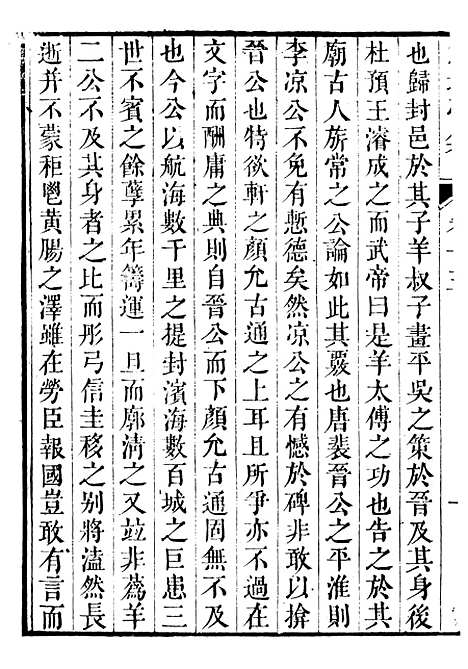 也歸封邑於其子羊叔子畫平吳之策於晉及其身後
杜預王濬成之而武帝曰是羊太傅之功也告之於其
廟古人旂常之公論如此其覈也唐裴晉公之平淮則
李凉公不免有慙德矣然凉公有憾於碑非敢以揜
晉公也特欲軒之顏允古通之上耳且所爭亦不過在
文字而酬庸之典則自晉公而下顏允古通固無不及
也今公以航海數千里之提封濱海數百城之巨患三
世不賓之餘孽累年籌運一旦而廓清之又竝非蔿羊
二公不及其身者之比而彤弓信圭移之别將溘然長
逝并不蒙秬鬯黃腸之澤雖在勞臣報國豈敢有言而